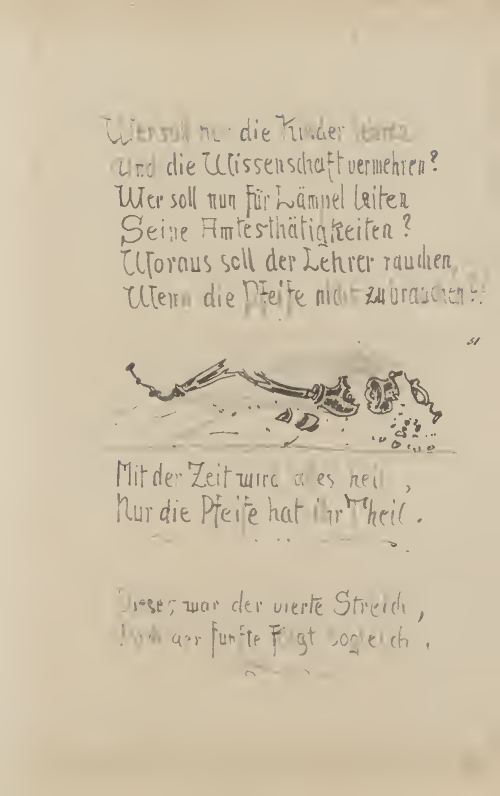 Wer soll nun die Kinder lehren
Und die Wissenschaft vermehren?
Wer soll nun für Lämpel leiten
Seine Amtesthätigkeiten?
Woraus soll der Lehrer rauchen,
Wenn die Pfeife nicht zu brauchen?:
51
Mit der Zeit wird alles heil,
Nur die Pfeife hat ihr Theil.
Dieses war der vierte Streich,
Doch der fünfte folgt sogleich.